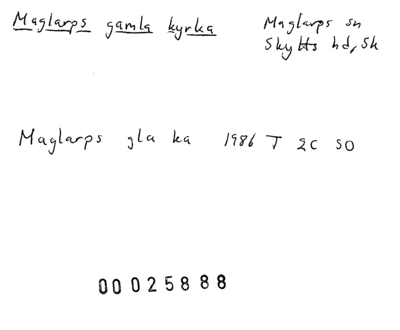 Maglarps gamla kyrka
Maglarps sn
Skytts hd, Sk
Maglarps gla ka 1986 T 2C SO
00025888